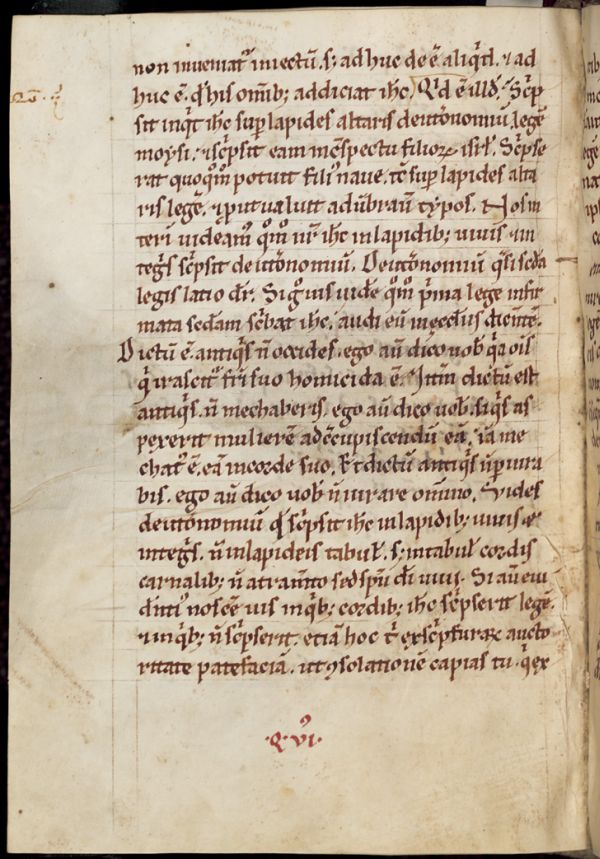 non inveniat᷑ iniectū. s; adhuc de ē aliqͥd. ⁊ ad
huc ē. q̇ his om̄ib; addiciat ih̄c. Qͥd ē illđ. Sc̄p
sit inqͥt ih̄c sup̱ lapides altaris deut̄onomiū legē
moysi. ⁊ sc̄psit eam in c̄spectu filioꝝ isrł. Sc̄pse
rat quoq̊m potuit fili᷒ naue. tē sup̱ lapides alta
ris legē. ⁊ put ualuit adūbrauī typos. Nos in
teri uideam᷒ q̊m nr̄ ih̄c in lapidib; uiuis ⁊ in
teg̓s sc̄psit deut̄onomiū. Deut̄onomiū q̄si scđa
legis latio dr̄. Si g̊ uis uiđe q̊m p̄ma lege infir
mata secđam sc̄bat ih̄c. audi eū in eccl̓iis dicentē.
Dictū ē. antiq̄s n̄ occides. ego aū dico uob̄. q̄a oīs
q̄ irascit᷑ fr̄i suo homicida ē. Itm̄ dictū est
antiq̄s. n̄ mechaberis. ego aū dico uob̄. siq̄s as
pexerit mulierē ad c̄cupiscendū eā. iā me
chat᷒ ē. eā in corde suo. Et dictū antiq̄s n̄ p̱iura
bis. ego aū dico uob̄ n̄ iurare om̄ino. Vides
deut̄onomiū q̇ sc̄psit ih̄c in lapidib; uiuis ⁊
integ̓s. n̄ in lapideis tabuł. s; in tabuł cordis
carnalib; n̄ atram̄to sed sp̄u đi uiui. Si aū eui
dinti᷒ noscē uis in q̄b; cordib; ih̄c sc̄pserit legē.
⁊ in q̄b; n̄ sc̄pserit. etiā hoc t̄ exsc̄pturaꝝ aucto
ritate patefaciā. ut ꝯsolationē capias tu. q̄ ex
.Q. VIꝰ.